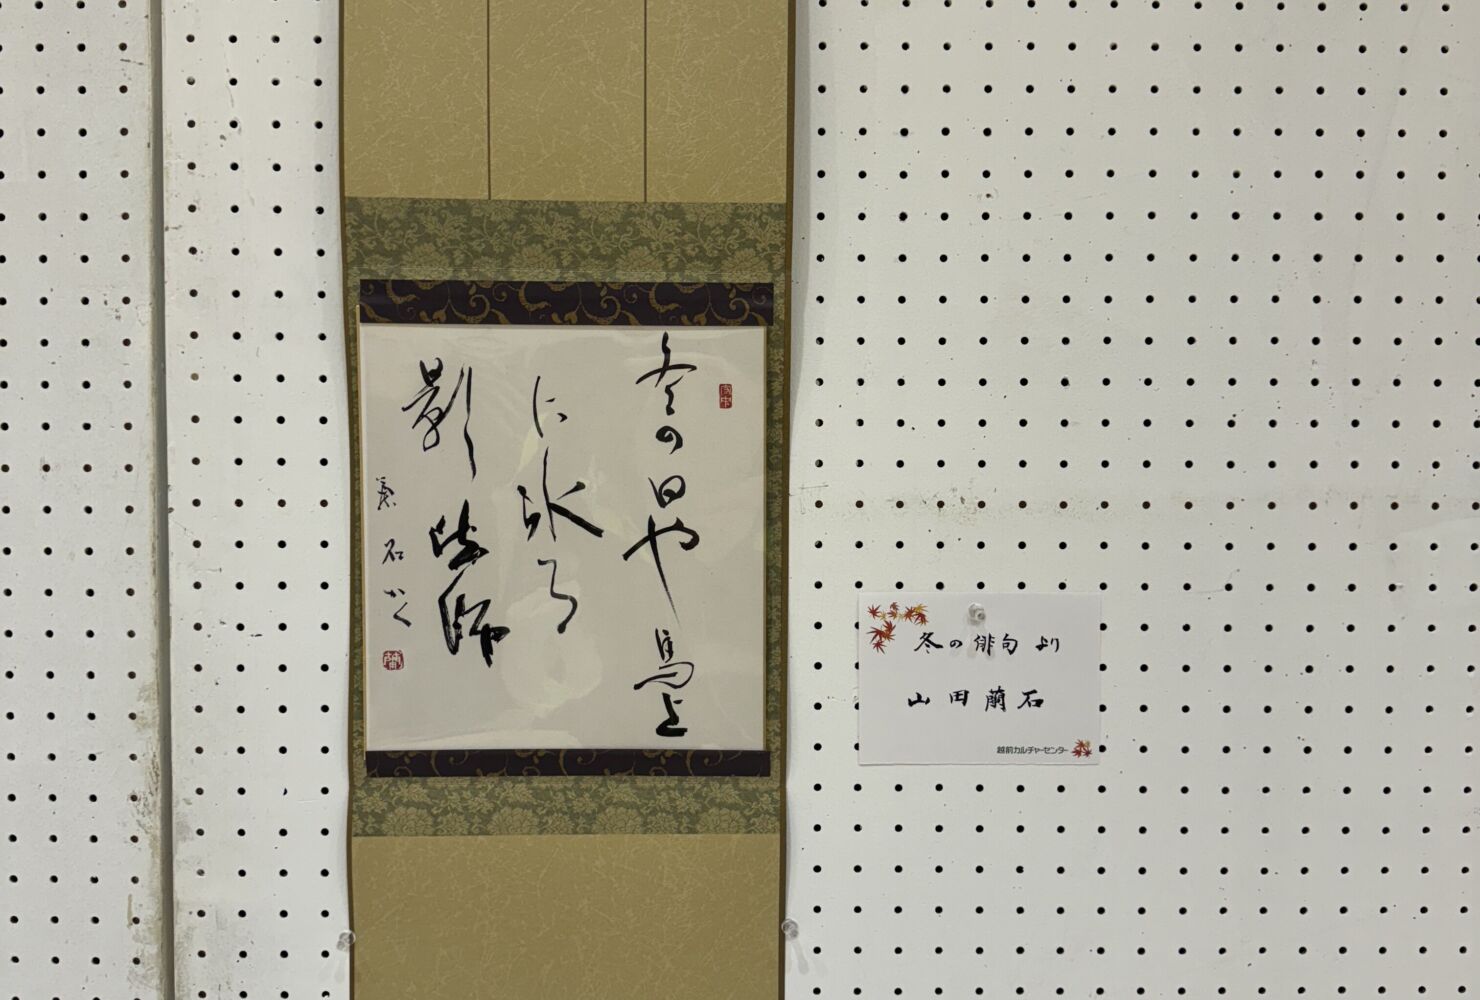 冬の日や馬上
に氷る
影法師
蘭石かく
冬の俳句より
山田蘭石
越前カルチャーセンター